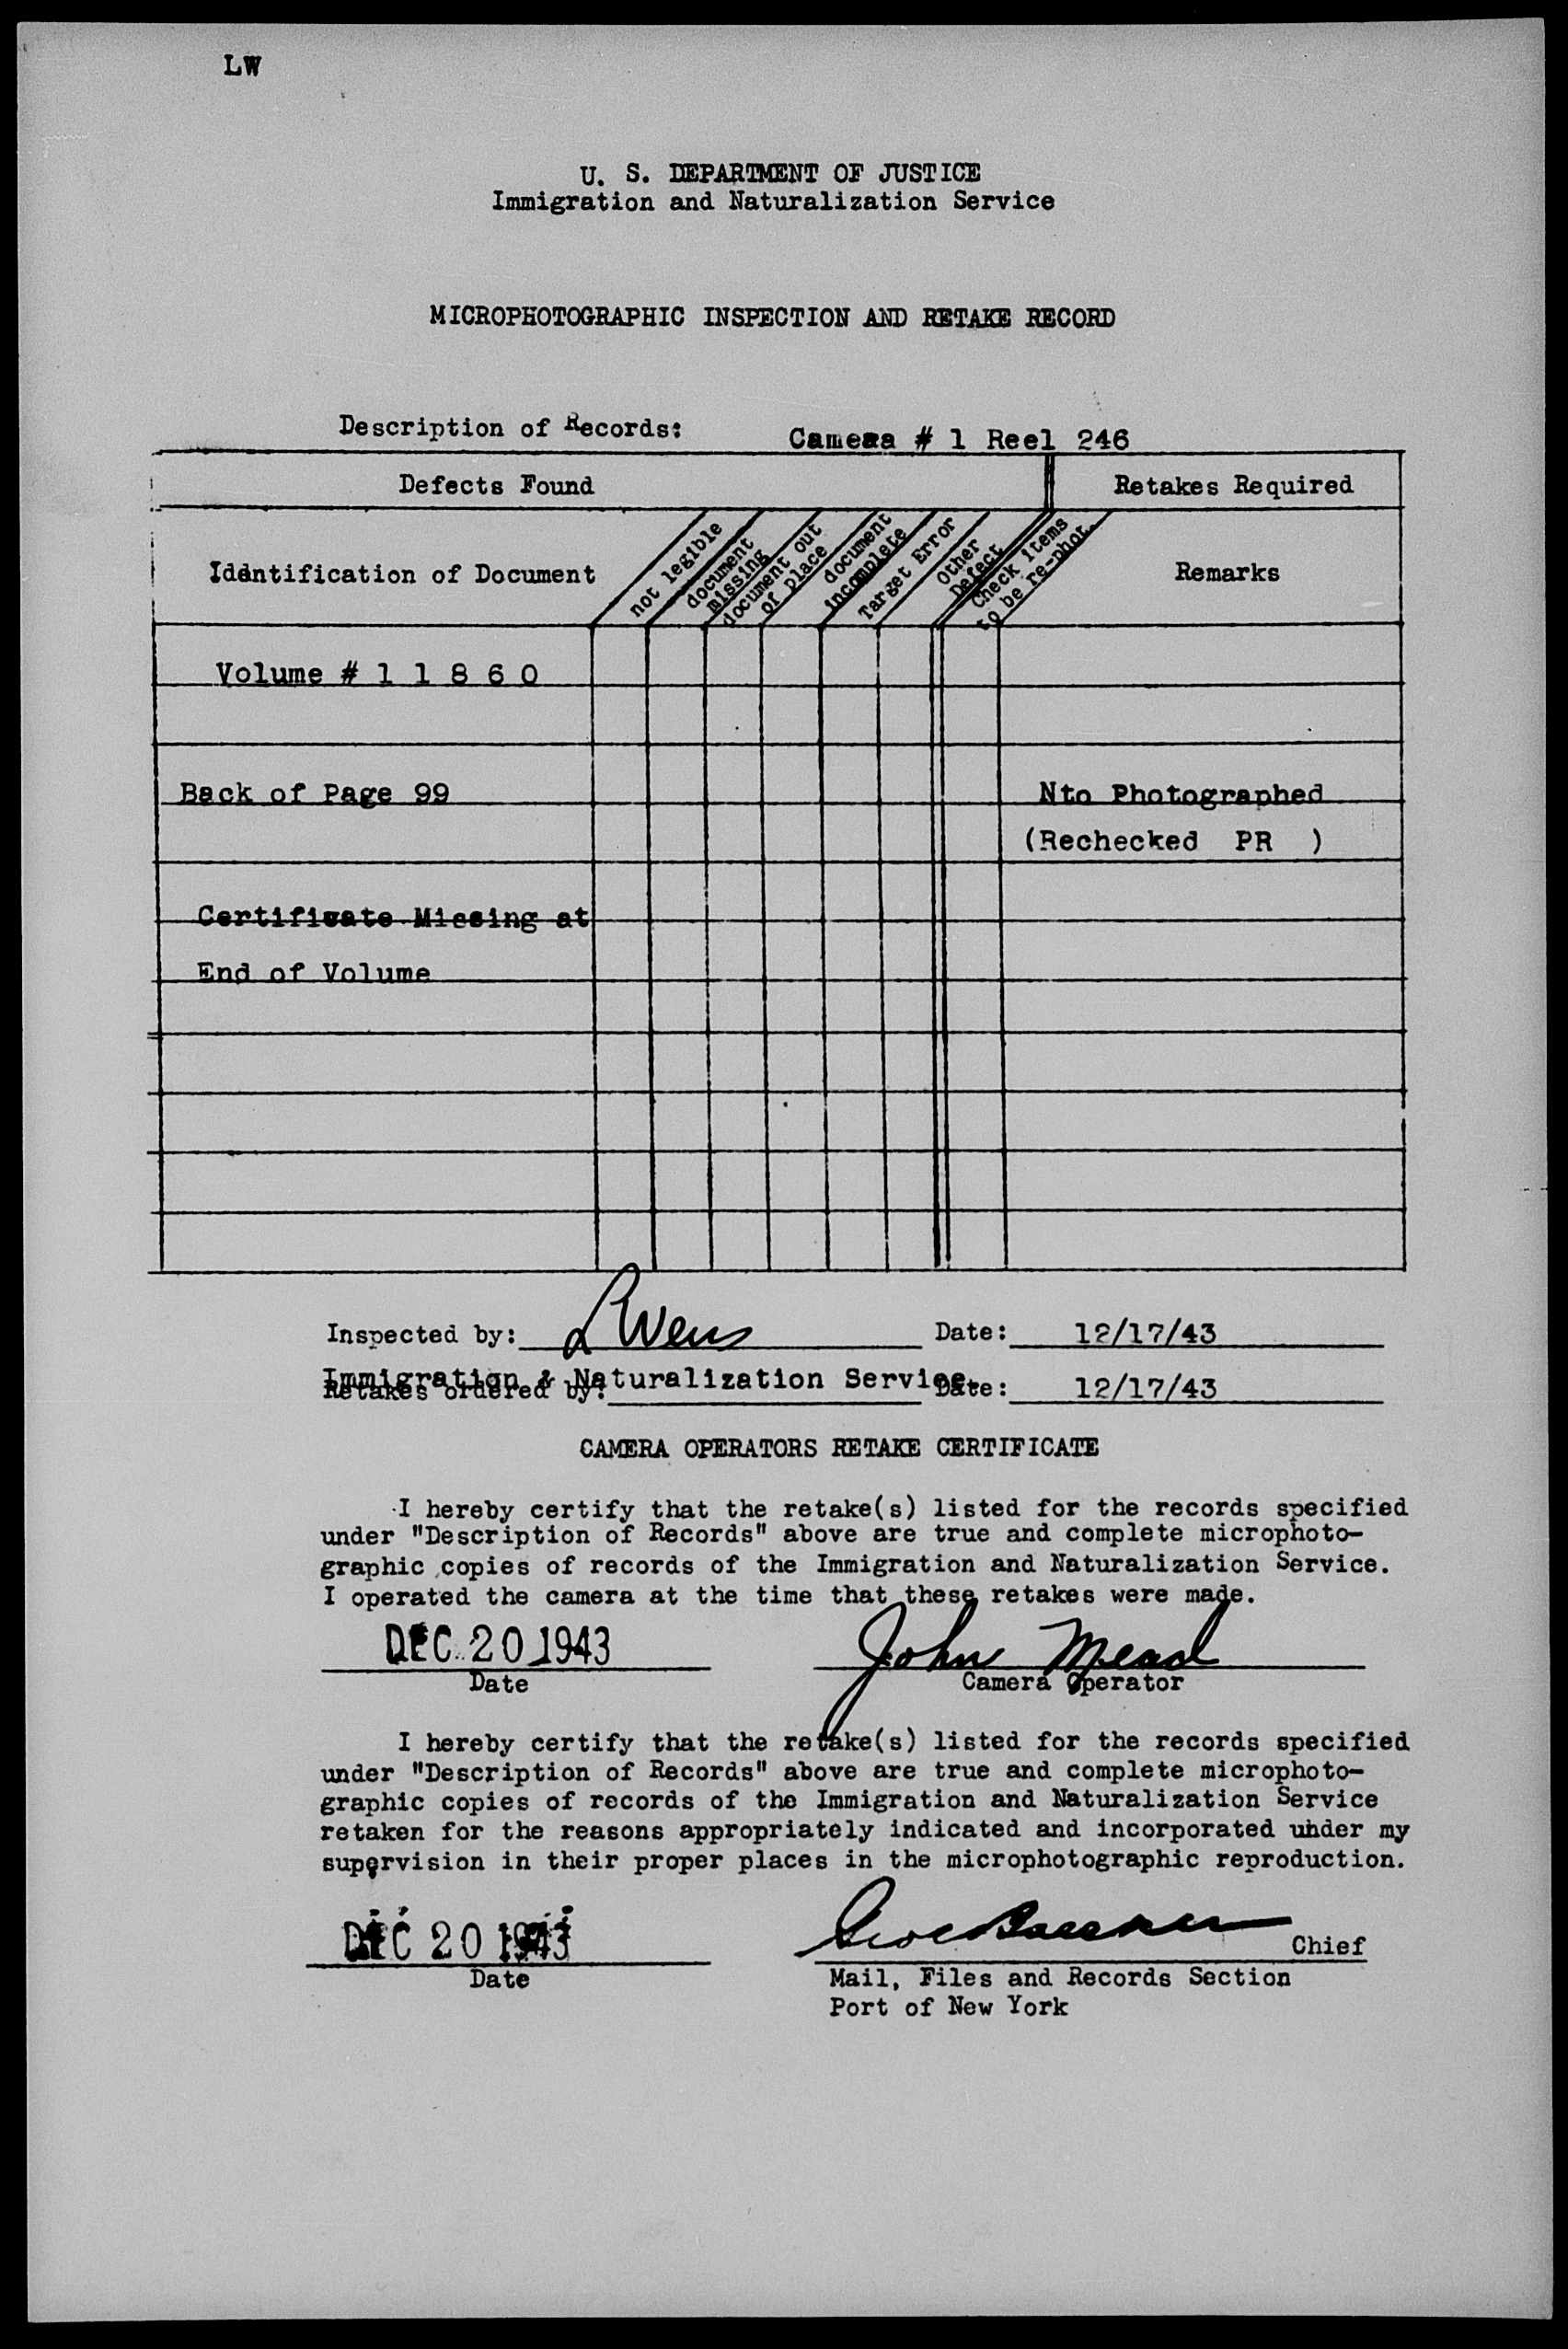 LW
U. S. DEPARTMENT OF JUSTICE
Immigration and Naturalization Service
MICROPHOTOGRAPHIC INSPECTION AND RETAKE RECORD
Description of Records: Camera # 1 Reel 246
Defects Found Retakes Required
Identification of Document
not legible
document missing
document out of place
document incomplete
Target Error
Other Defect
Check items to be re-phot.
Remarks
Volume # 1 1 8 6 0
Back of Page 99 Nto Photographed
(Rechecked PR )
Certificate Missing at
End of Volume
Inspected by: Date: 12/17/43
Immigration & Naturalization Service
Retakes ordered by: Date: 12/17/43
CAMERA OPERATORS RETAKE CERTIFICATE
I hereby certify that the retake(s) listed for the records specified
under "Description of Records" above are true and complete microphoto-
graphic copies of records of the Immigration and Naturalization Service.
I operated the camera at the time that these retakes were made.
DEC 20 1943 John Mead
Date Camera Operator
I hereby certify that the retake(s) listed for the records specified
under "Description of Records" above are true and complete microphoto-
graphic copies of records of the Immigration and Naturalization Service
retaken for the reasons appropriately indicated and incorporated under my
supervision in their proper places in the microphotographic reproduction.
DEC 20 1943 Chief
Date Mail, Files and Records Section
Port of New York